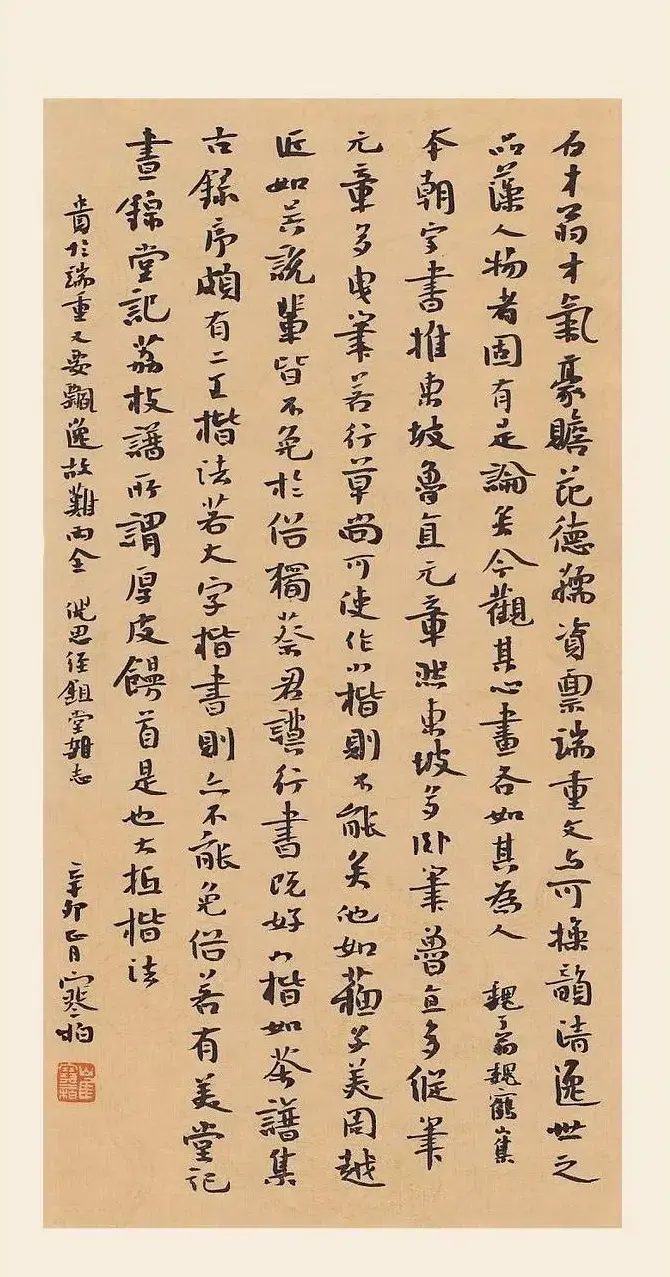 石才翁才氣豪贍范德孺資禀端重文与可操韻清逸世之
品藻人物者固有是論矣今觀其心畫各如其為人 魏了翁魏鶴山集
本朝字書推東坡魯直元章然東坡多卧筆魯直多縱筆
元章多曳筆若行草尚可使作小楷則不能矣他如蘇子美周越
近如吳說輩皆不免於俗獨蔡君謨行書既好小楷如茶譜集
古錄序頗有二王楷法若大字楷書則亦不能免俗若有美堂記
晝錦堂記荔枝譜所謂厚皮饅首是也大抵楷法
貴於端重又要飄逸故難兩全 沈思經鉏堂雜志 辛卯正月寒柏